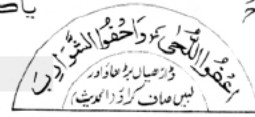 اعفوا اللحیٰ واحفوا الشوارب
ڈاڑھیاں بڑھاؤ اور
لبیں صاف کراؤ (الحدیث)